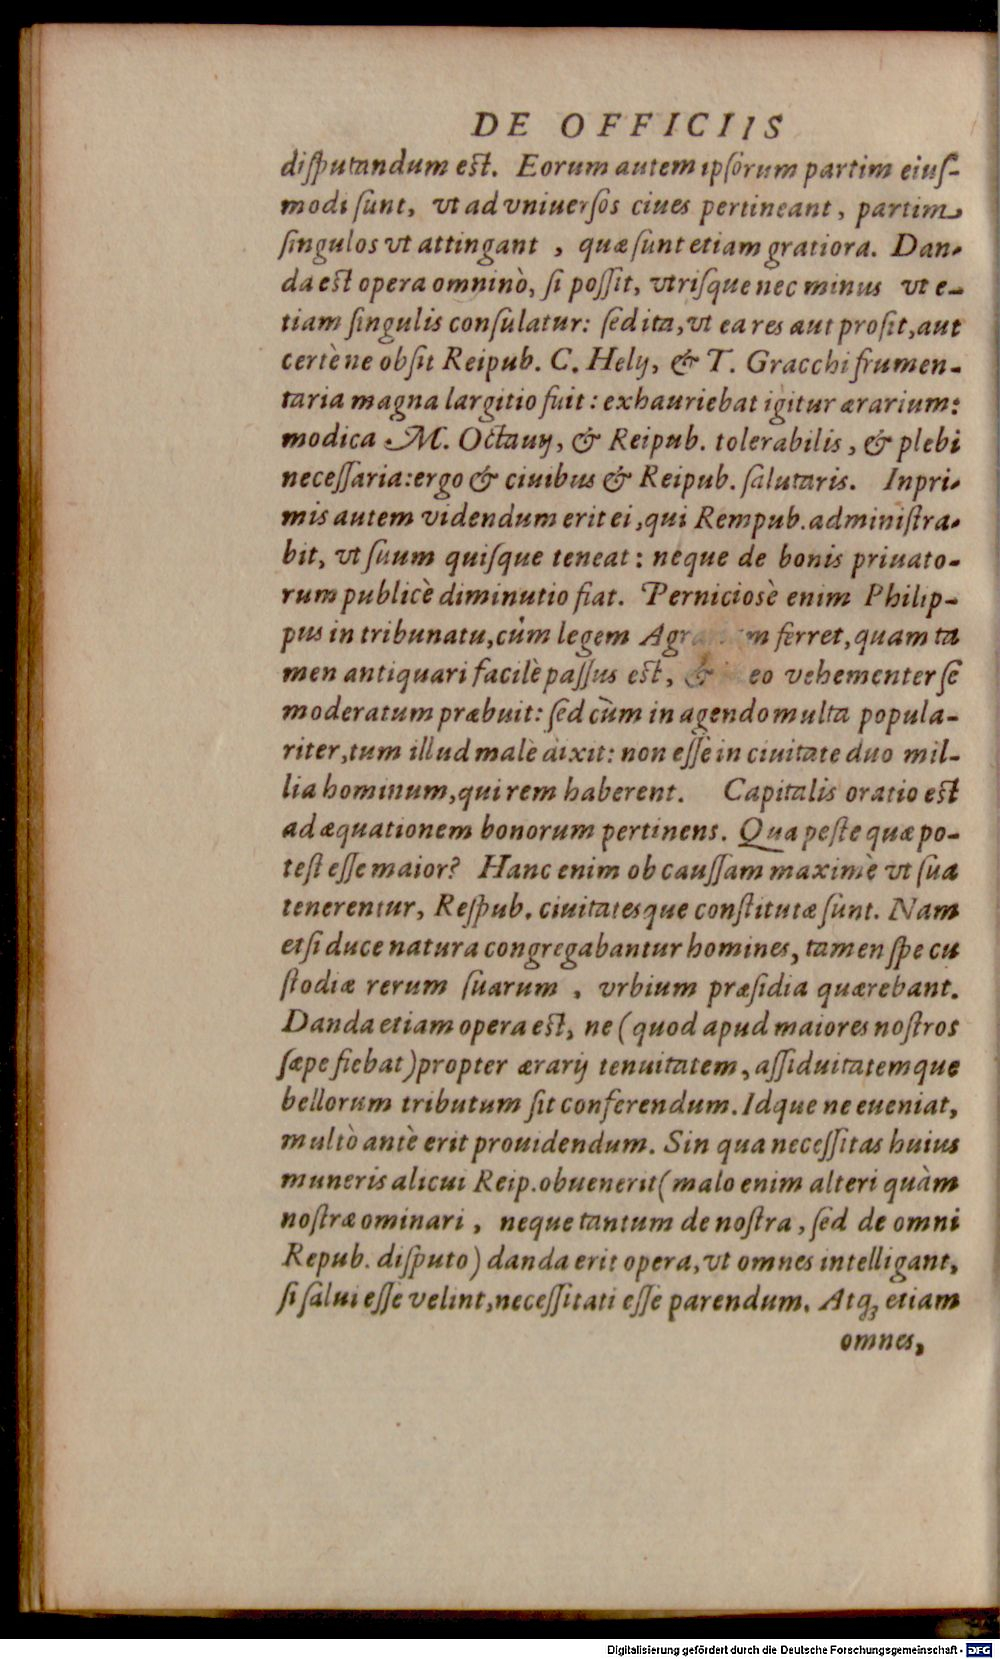 DE OFFICIIS
diſputandum eſt. Eorum autem ipſorum partim eiuſ-
modi ſunt, vt ad vniuerſos ciues pertineant, partim
ſingulos vt attingant, quæ ſunt etiam gratiora. Dan-
da eſt opera omninò, ſi poſſit, vtriſque nec minus vt e-
tiam ſingulis conſulatur: ſed ita, vt ea res aut proſit, aut
certè ne obſit Reipub. C. Helij, & T. Gracchi frumen-
taria magna largitio fuit: exhauriebat igitur ærarium:
modica M. Octauij, & Reipub. tolerabilis, & plebi
neceſſaria: ergo & ciuibus & Reipub. ſalutaris. Inpri-
mis autem videndum erit ei, qui Rempub. adminiſtra-
bit, vt ſuum quiſque teneat: neque de bonis priuato-
rum publicè diminutio fiat. Perniciosè enim Philip-
pus in tribunatu, cùm legem ferret, quam ta
men antiquari facilè paſſus eſt, & eo vehementer ſe
moderatum præbuit: ſed cùm in agendo multa popula-
riter, tum illud malè dixit: non eſſe in ciuitate duo mil-
lia hominum, qui rem haberent. Capitalis oratio eſt
ad æquationem bonorum pertinens. Qua peſte quæ po-
teſt eſſe maior? Hanc enim ob cauſſam maximè vt ſua
tenerentur, Reſpub. ciuitatesque conſtitutæ ſunt. Nam
etſi duce natura congregabantur homines, tamen ſpe cu
ſtodiæ rerum ſuarum, vrbium præſidia quærebant.
Danda etiam opera eſt, ne (quod apud maiores noſtros
ſæpe fiebat) propter ærarij tenuitatem, aſſiduitatemque
bellorum tributum ſit conferendum. Idque ne eueniat,
multò antè erit prouidendum. Sin qua neceſſitas huius
muneris alicui Reip. obuenerit (malo enim alteri quàm
noſtræ ominari, neque tantum de noſtra, ſed de omni
Repub. diſputo) danda erit opera, vt omnes intelligant,
ſi ſalui eſſe velint, neceſſitati eſſe parendum. Atq; etiam
omnes,
Digitalisierung gefördert durch die Deutsche Forschungsgemeinschaft - DFG